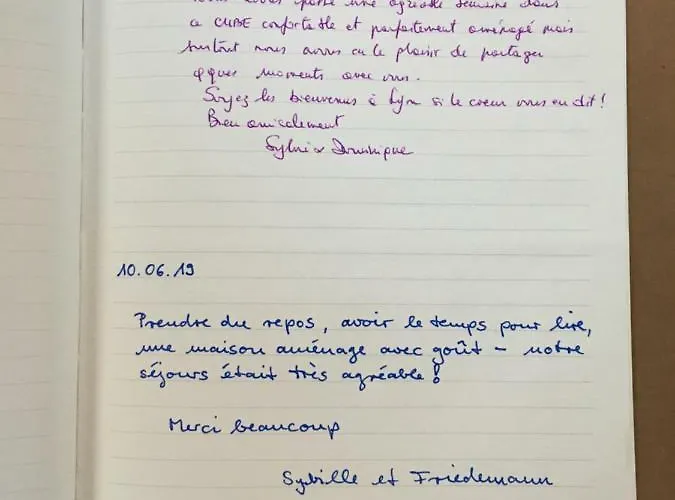 une agréable semaine dans
ce CUBE confortable et parfaitement aménagé mais
surtout nous avons eu le plaisir de partager
qques moments avec vous.
Soyez les bienvenus à Lyon si le coeur vous en dit !
Bien amicalement
Sylvie & Dominique
10.06.19
Prendre du repos, avoir le temps pour lire,
une maison aménage avec goût – notre
séjours était très agréable !
Merci beaucoup
Sybille et Friedemann